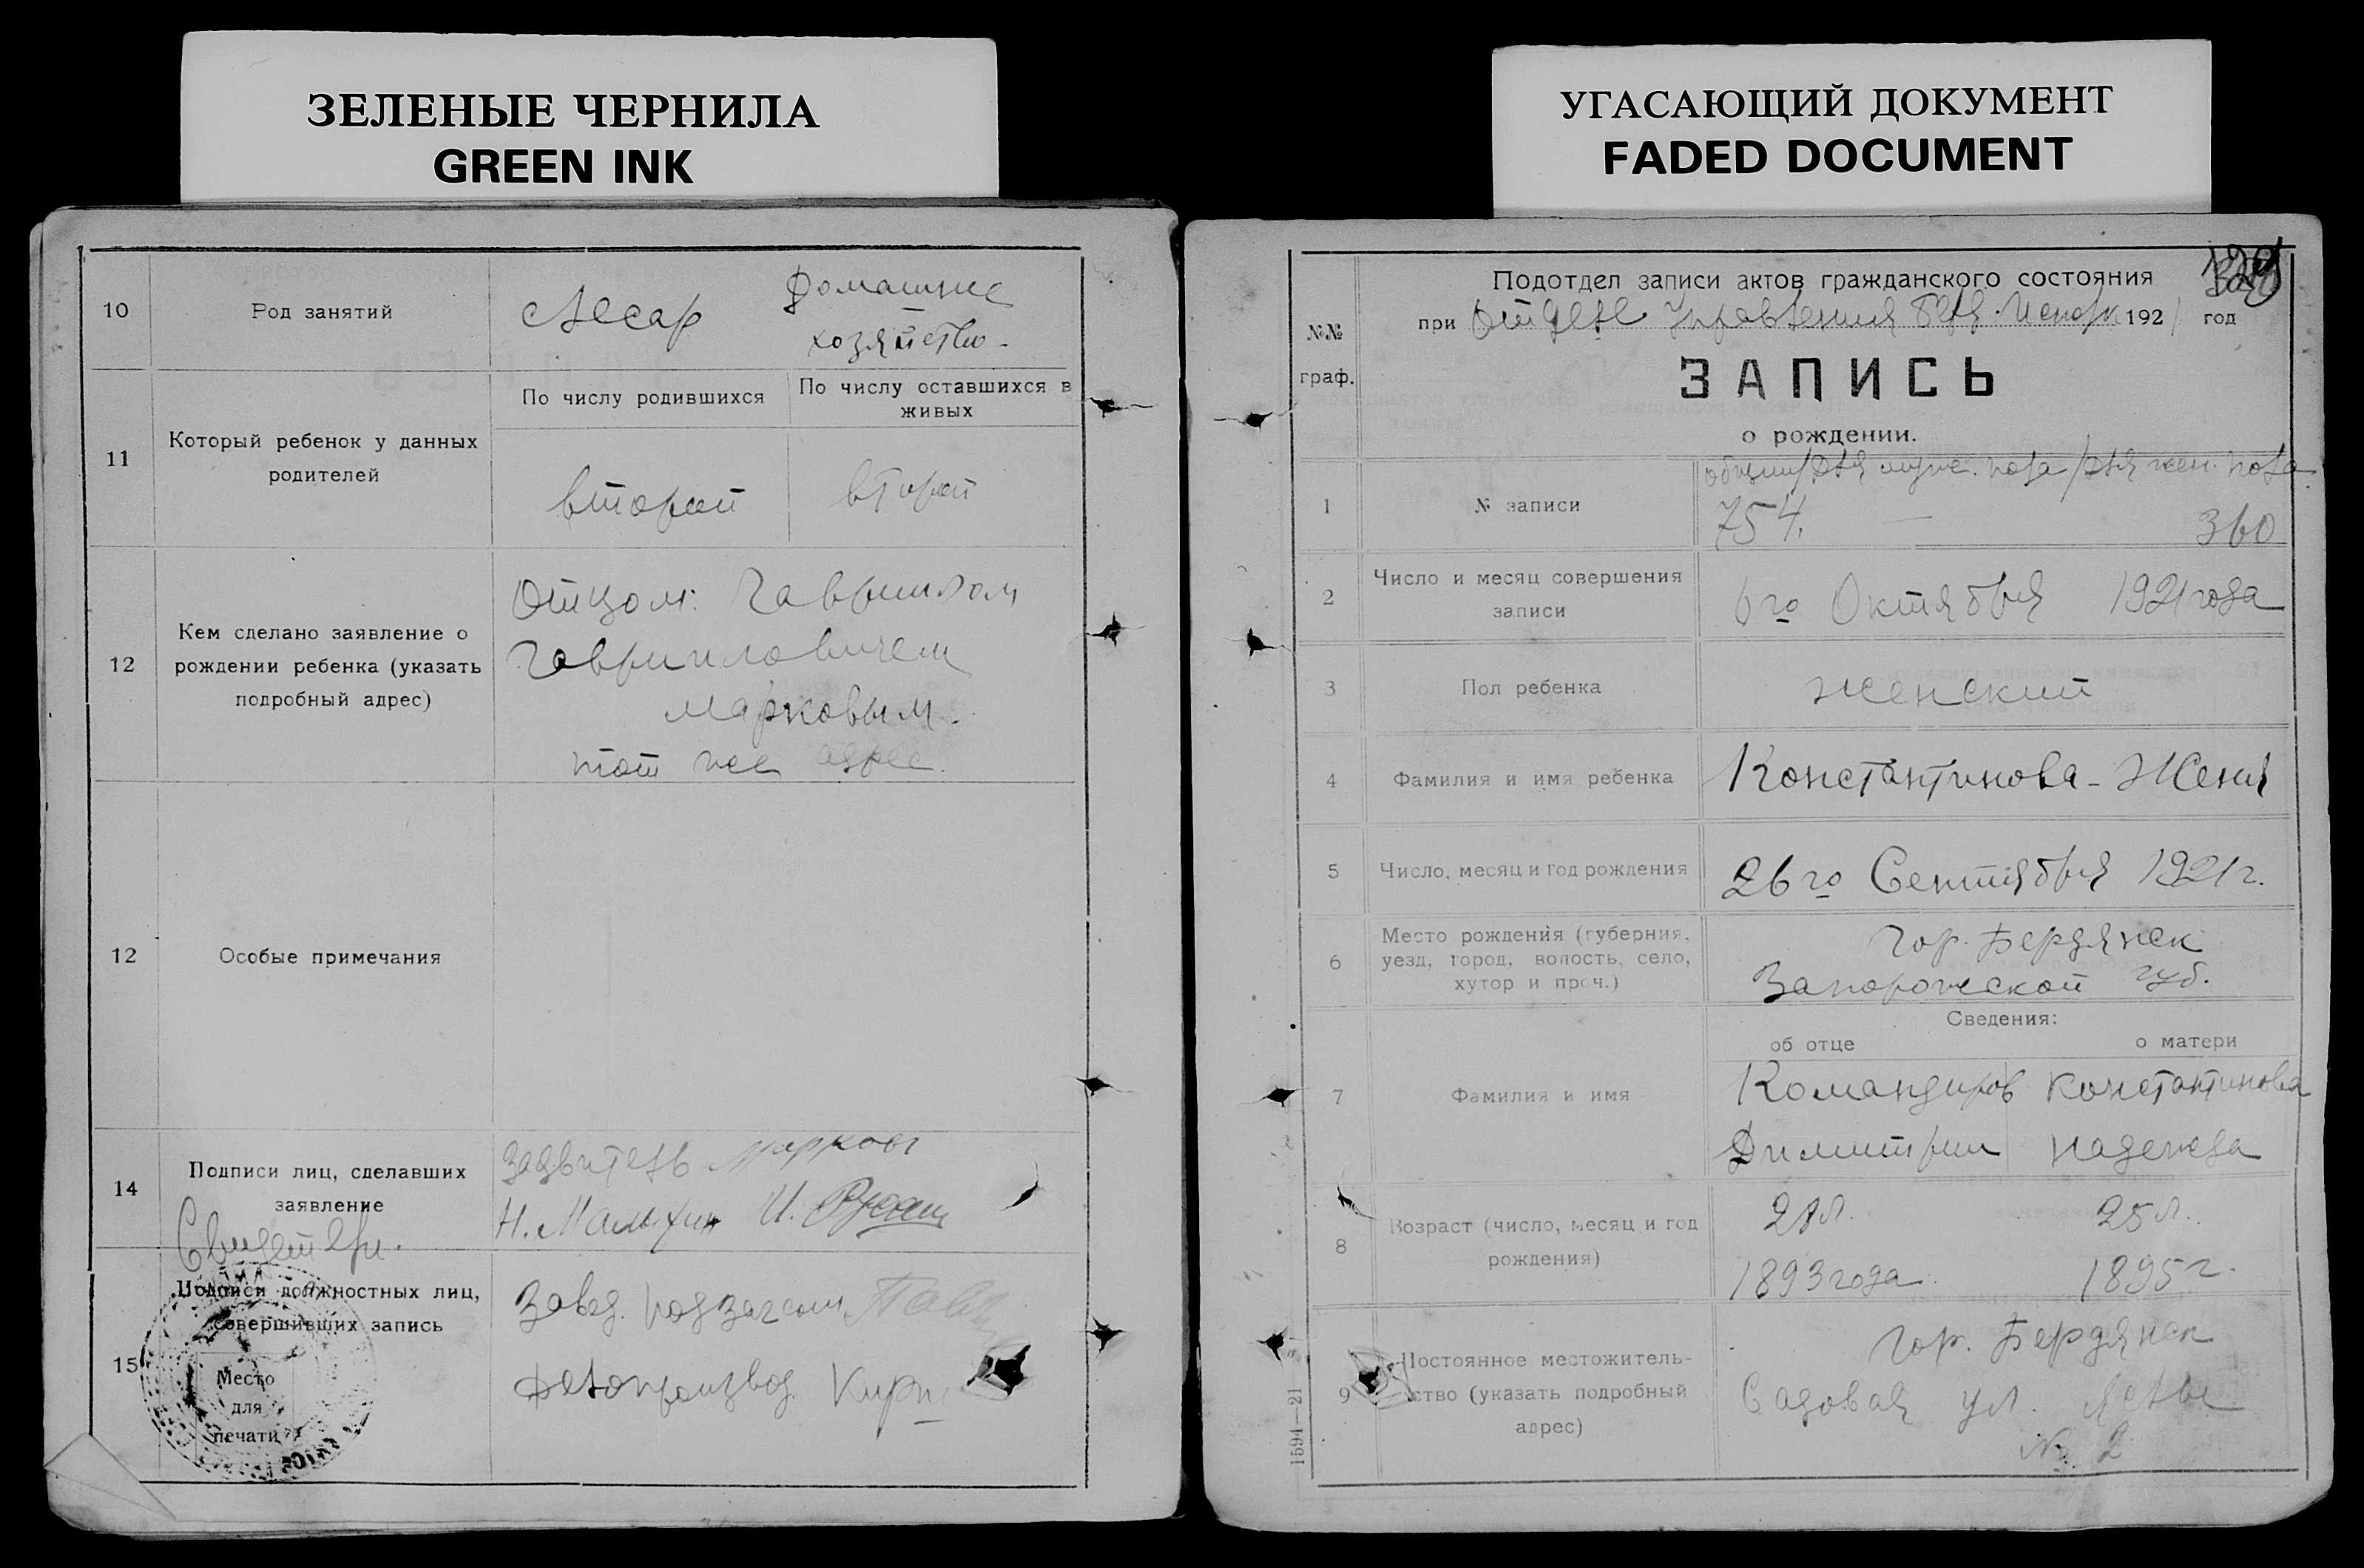 ЗЕЛЕНЫЕ ЧЕРНИЛА
GREEN INK
10
Род занятий
Слесар
Домашнее
хозяйство.
11
Который ребенок у данных
родителей
По числу родившихся
По числу оставшихся в
живых
второй
второй
12
Кем сделано заявление о
рождении ребенка (указать
подробный адрес)
Отцом: Гавриилом
Гаврииловичем
Марковым.
тот же адрес.
12
Особые примечания
14
Подписи лиц, сделавших
заявление
Свидетели.
заявитель Марков
Н. Малыхин И.
15
Подписи должностных лиц,
совершивших запись
Место
для
печати
Завед. подзагсом
Делопроизвод.
УГАСАЮЩИЙ ДОКУМЕНТ
FADED DOCUMENT
№№
граф.
Подотдел записи актов гражданского состояния
при Отделе Управления Берд. Исполк 1921 год
ЗАПИСЬ
о рождении.
1
№ записи
общий/для муже. пола/для жен. пола
754. — 360
2
Число и месяц совершения
записи
6го Октября 1921 года
3
Пол ребенка
женский
4
Фамилия и имя ребенка
Константинова - Женя
5
Число, месяц и год рождения
26го Сентября 1921 г.
6
Место рождения (губерния,
уезд, город, волость, село,
хутор и проч.)
гор. Бердянск
Запорожской губ.
Сведения:
об отце
о матери
7
Фамилия и имя
Командиров
Димитрий
Константинова
Надежда
8
Возраст (число, месяц и год
рождения)
л.
1893 года
25 л.
1895 г.
9
Постоянное местожитель-
ство (указать подробный
адрес)
гор. Бердянск
Садовая ул. Ясли
№ 2
1591—21